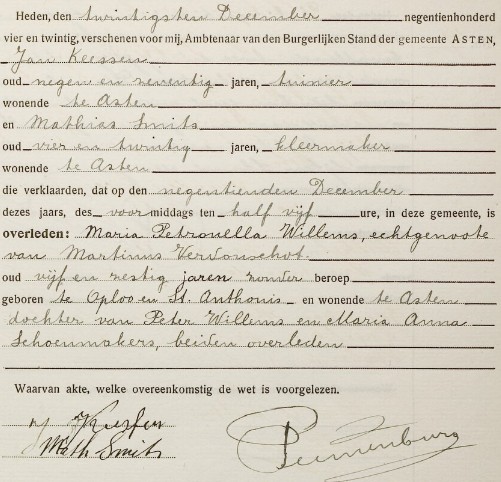 Heden, den twintigsten December negentienhonderd
vier en twintig, verschenen voor mij, Ambtenaar van den Burgerlijken Stand der gemeente ASTEN,
Jan Keesen
oud negen en zeventig jaren, tuinier
wonende te Asten
en Mathias Smits
oud vier en twintig jaren, kleermaker
wonende te Asten
die verklaarden, dat op den negentienden December
dezes jaars, des voormiddags ten half vijf ure, in deze gemeente, is
overleden: Maria Petronella Willems, echtgenoote
van Martinus Verdonschot
oud vijf en zestig jaren zonder beroep
geboren te Oploo en St. Anthonis en wonende te Asten
dochter van Peter Willems en Maria Anna
Schoenmakers, beiden overleden
Waarvan akte, welke overeenkomstig de wet is voorgelezen.
Math Smits